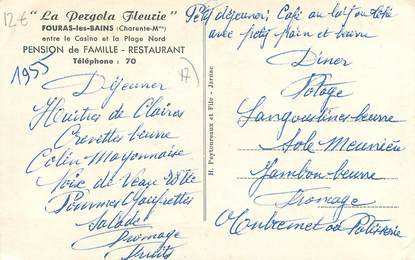 12€
" La Pergola Fleurie "
FOURAS-les-BAINS (Charente-Mme)
entre le Casino et la Plage Nord
PENSION de FAMILLE - RESTAURANT
Téléphone : 70
1955
Déjeuner
Huitres de Claires
Crevettes beurre
Colin Mayonnaise
Noix de Veau Rôtie
Pommes Gaufrettes
Salade
Fromage
Fruits
H. Peytoureaux et Fils - Jarnac
Petit déjeuner: Café au lait ou thé
avec petit pain et beurre
Diner
Potage
Langoustines beurre
Sole Meunière
Jambon beurre
Fromage
Entremet ou Patisserie